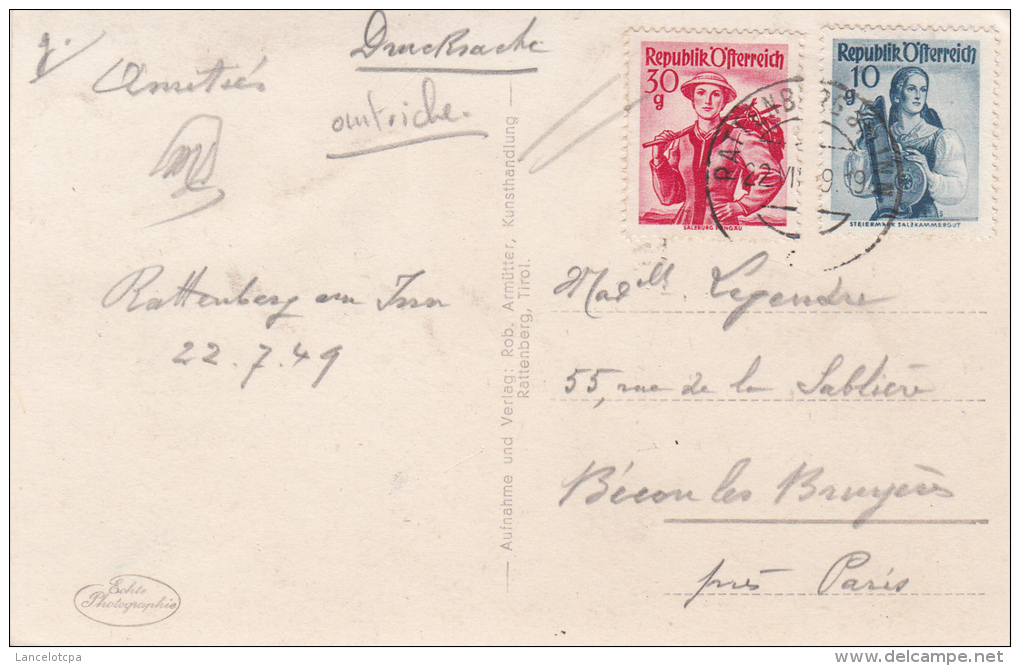 Drucksache
Amitiés
autriche.
Rattenberg am Inn
22.7.49
Echte
Photographie
Aufnahme und Verlag: Rob. Armütter, Kunsthandlung
Rattenberg, Tirol.
Republik Österreich
30
g
SALZBURG PONGAU
Republik Österreich
10
g
STEIERMARK SALZKAMMERGUT
RATTENBERG
22 VII 9.19
Madelle Legendre
55, rue de la Sablière
Bécon les Bruyères
près Paris
Lancelotcpa
www.delcampe.net